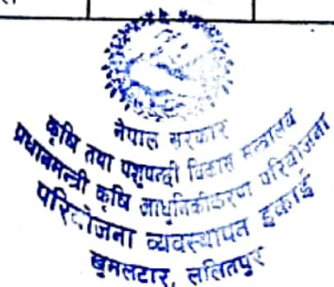 नेपाल सरकार
कृषि तथा पशुपन्छी विकास मन्त्रालय
प्रधानमन्त्री कृषि आधुनिकीकरण परियोजना
परियोजना व्यवस्थापन इकाई
खुमलटार, ललितपुर